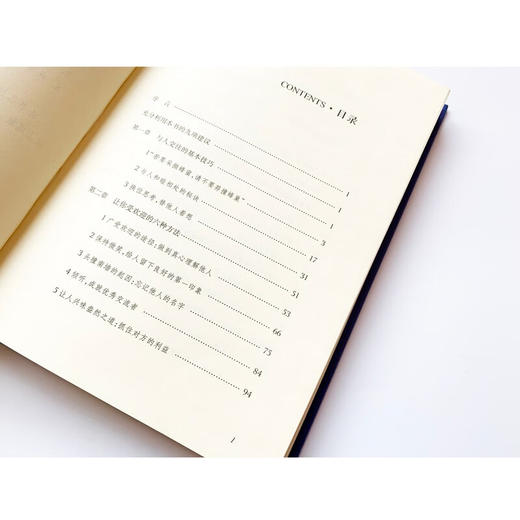 CONTENTS · 目录
序言
充分利用本书的九项建议 1
第一章 与人交往的基本技巧 1
1“若要采摘蜂蜜，请不要弄撞蜂巢” 3
2 与人和睦相处的秘诀 17
3 换位思考，替他人着想 31
第二章 让你受欢迎的六种方法 51
1 广受欢迎的途径：做到真心理解他人 53
2 保持微笑，给人留下良好的第一印象 66
3 头撞南墙的起因：忘记他人的名字 75
4 倾听，成就优秀交流者 84
5 让人兴味盎然之道：抓住对方的利益 94
1